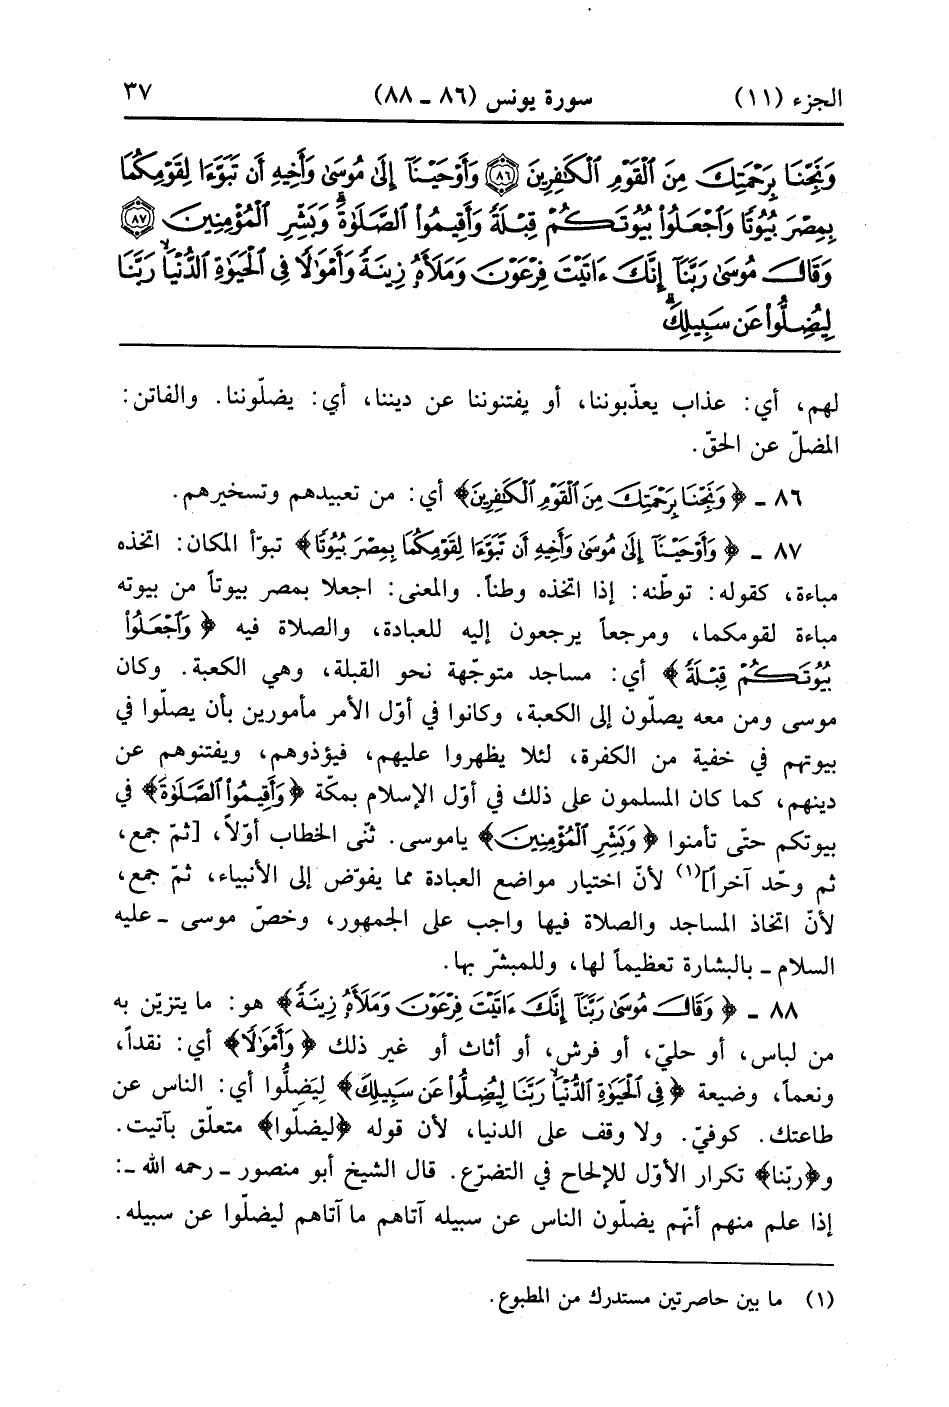 الجزء (١١) سورة يونس (٨٦ ـ ٨٨) ٣٧
وَنَجِّنَا بِرَحْمَتِكَ مِنَ ٱلْقَوْمِ ٱلْكَٰفِرِينَ ﴿٨٦﴾ وَأَوْحَيْنَآ إِلَىٰ مُوسَىٰ وَأَخِيهِ أَن تَبَوَّءَا لِقَوْمِكُمَا
بِمِصْرَ بُيُوتًا وَٱجْعَلُوا۟ بُيُوتَكُمْ قِبْلَةً وَأَقِيمُوا۟ ٱلصَّلَوٰةَ ۗ وَبَشِّرِ ٱلْمُؤْمِنِينَ ﴿٨٧﴾
وَقَالَ مُوسَىٰ رَبَّنَآ إِنَّكَ ءَاتَيْتَ فِرْعَوْنَ وَمَلَأَهُۥ زِينَةً وَأَمْوَٰلًا فِى ٱلْحَيَوٰةِ ٱلدُّنْيَا رَبَّنَا
لِيُضِلُّوا۟ عَن سَبِيلِكَ ۖ
لهم، أي: عذاب يعذّبوننا، أو يفتنوننا عن ديننا، أي: يضلّوننا. والفاتن:
المضلّ عن الحقّ.
٨٦ ـ ﴿وَنَجِّنَا بِرَحْمَتِكَ مِنَ ٱلْقَوْمِ ٱلْكَٰفِرِينَ﴾ أي: من تعبيدهم وتسخيرهم.
٨٧ ـ ﴿وَأَوْحَيْنَآ إِلَىٰ مُوسَىٰ وَأَخِيهِ أَن تَبَوَّءَا لِقَوْمِكُمَا بِمِصْرَ بُيُوتًا﴾ تبوّأ المكان: اتخذه
مباءة، كقوله: توطّنه: إذا اتخذه وطناً. والمعنى: اجعلا بمصر بيوتاً من بيوته
مباءة لقومكما، ومرجعاً يرجعون إليه للعبادة، والصلاة فيه ﴿وَٱجْعَلُوا۟
بُيُوتَكُمْ قِبْلَةً﴾ أي: مساجد متوجّهة نحو القبلة، وهي الكعبة. وكان
موسى ومن معه يصلّون إلى الكعبة، وكانوا في أوّل الأمر مأمورين بأن يصلّوا في
بيوتهم في خفية من الكفرة، لئلا يظهروا عليهم، فيؤذوهم، ويفتنوهم عن
دينهم، كما كان المسلمون على ذلك في أوّل الإسلام بمكّة ﴿وَأَقِيمُوا۟ ٱلصَّلَوٰةَ﴾ في
بيوتكم حتّى تأمنوا ﴿وَبَشِّرِ ٱلْمُؤْمِنِينَ﴾ ياموسى. ثنّى الخطاب أوّلاً، [ثمّ جمع،
ثم وحّد آخراً](١) لأنّ اختيار مواضع العبادة مما يفوّض إلى الأنبياء، ثمّ جمع،
لأنّ اتخاذ المساجد والصلاة فيها واجب على الجمهور، وخصّ موسى ـ عليه
السلام ـ بالبشارة تعظيماً لها، وللمبشّر بها.
٨٨ ـ ﴿وَقَالَ مُوسَىٰ رَبَّنَآ إِنَّكَ ءَاتَيْتَ فِرْعَوْنَ وَمَلَأَهُۥ زِينَةً﴾ هو: ما يتزيّن به
من لباس، أو حليّ، أو فرش، أو أثاث أو غير ذلك ﴿وَأَمْوَٰلًا﴾ أي: نقداً،
ونعماً، وضيعة ﴿فِى ٱلْحَيَوٰةِ ٱلدُّنْيَا رَبَّنَا لِيُضِلُّوا۟ عَن سَبِيلِكَ﴾ لِيَضِلُّوا أي: الناس عن
طاعتك. كوفيّ. ولا وقف على الدنيا، لأن قوله ﴿ليضلّوا﴾ متعلّق بآتيت.
و﴿ربّنا﴾ تكرار الأوّل للإلحاح في التضرّع. قال الشيخ أبو منصور ـ رحمه الله ـ:
إذا علم منهم أنّهم يضلّون الناس عن سبيله آتاهم ما آتاهم ليضلّوا عن سبيله.
(١) ما بين حاصرتين مستدرك من المطبوع.